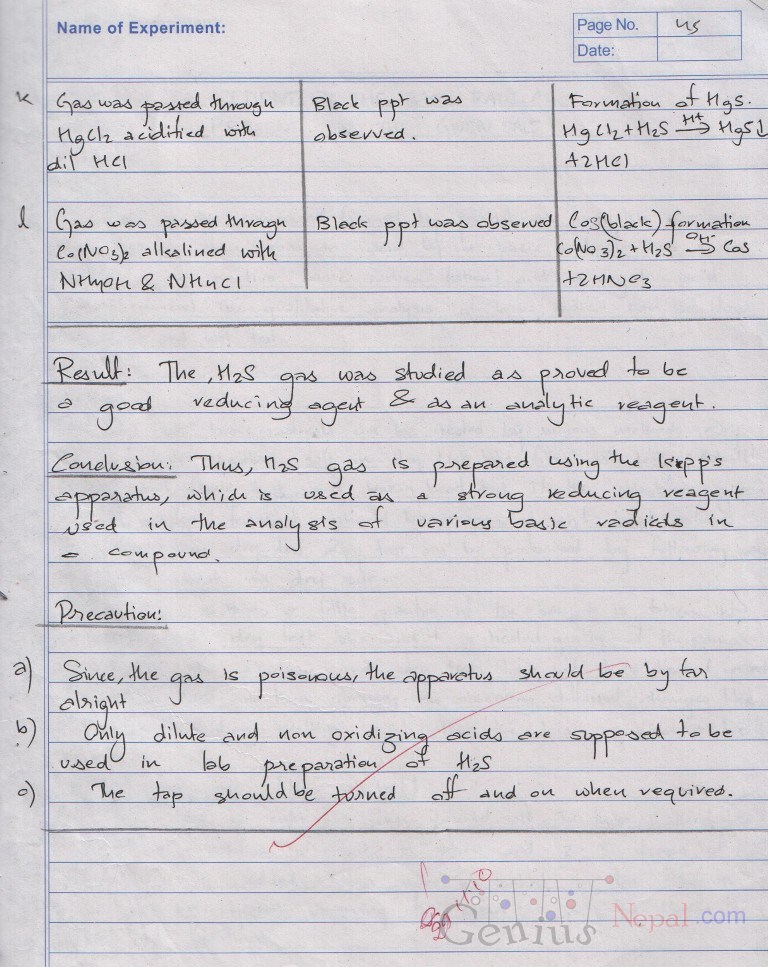 Name of Experiment:
Page No. 45
Date:
k Gas was passed through
HgCl2 acidified with
dil HCl
Black ppt was
observed.
Formation of HgS.
HgCl2+H2S H+→ HgS↓
+2HCl
l Gas was passed through
Co(NO3)2 alkalined with
NH4OH & NH4Cl
Black ppt was observed
CoS(black) formation
Co(NO3)2+H2S OH-→ CoS
+2HNO3
Result: The, H2S gas was studied as proved to be
a good reducing agent & as an analytic reagent.
Conclusion: Thus, H2S gas is prepared using the kipp's
apparatus, which is used as a strong reducing reagent
used in the analysis of various basic radicals in
a compound.
Precaution:
a) Since, the gas is poisonous, the apparatus should be by far
alright
b) Only dilute and non oxidizing acids are supposed to be
used in lab preparation of H2S
c) The tap should be turned off and on when required.
Genius Nepal.com